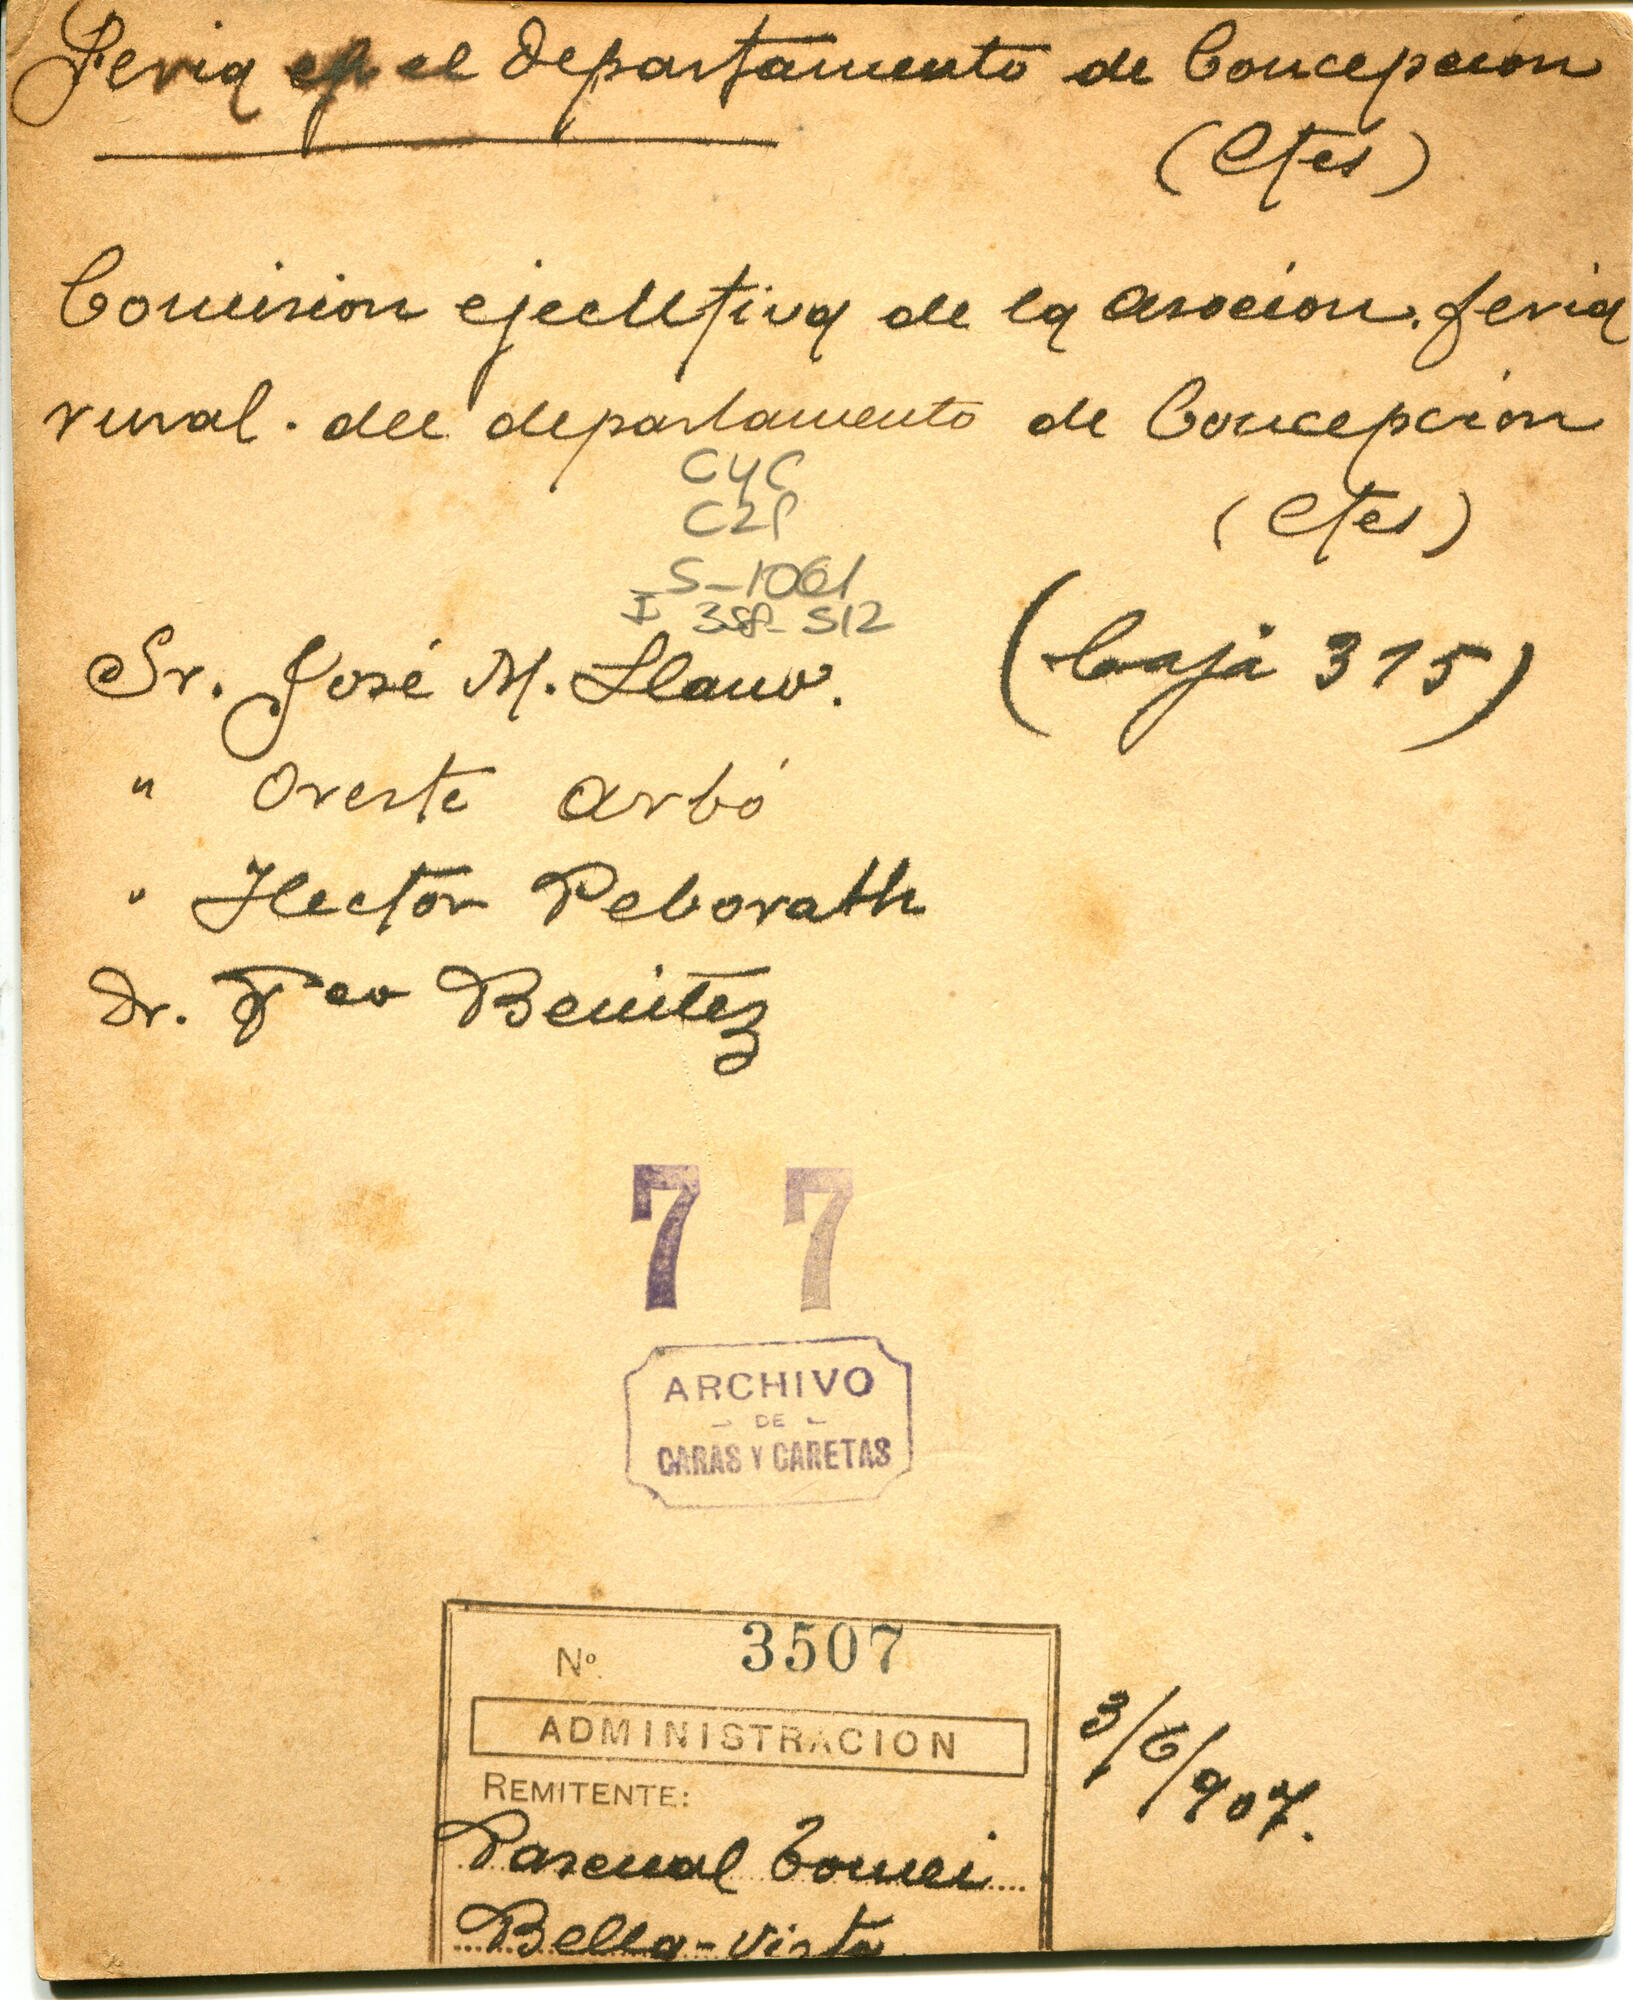 Feria en el Departamento de Concepcion
(Ctes)
Comision ejecutiva de la asocion. feria
rural. del departamento de Concepcion
(Ctes)
CyC
S-1061
Sr. José M. Llano.
(Caja 315)
" Oreste Arbó
" Hector Peborath
Dr. Fco Benitez
7 7
ARCHIVO
DE
CARAS Y CARETAS
Nº 3507
ADMINISTRACION
REMITENTE:
3/6/907.
Pascual Tomei
Bella-Vista